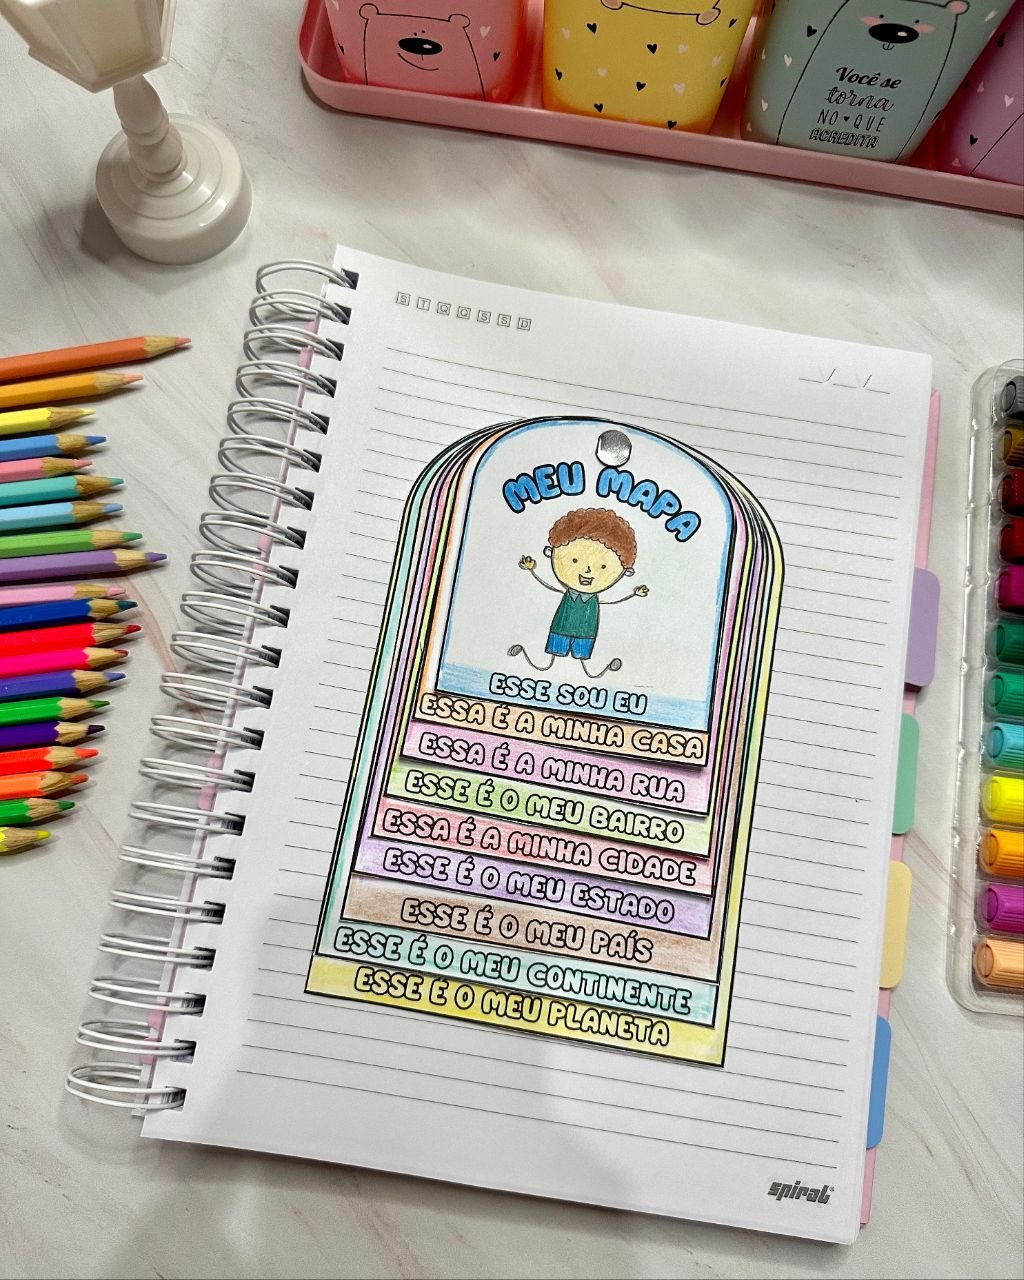 Você se
torna
NO QUE
ACREDITA
S T Q Q S S D
__/__/__
MEU MAPA
ESSE SOU EU
ESSA É A MINHA CASA
ESSA É A MINHA RUA
ESSE É O MEU BAIRRO
ESSA É A MINHA CIDADE
ESSE É O MEU ESTADO
ESSE É O MEU PAÍS
ESSE É O MEU CONTINENTE
ESSE É O MEU PLANETA
spiral